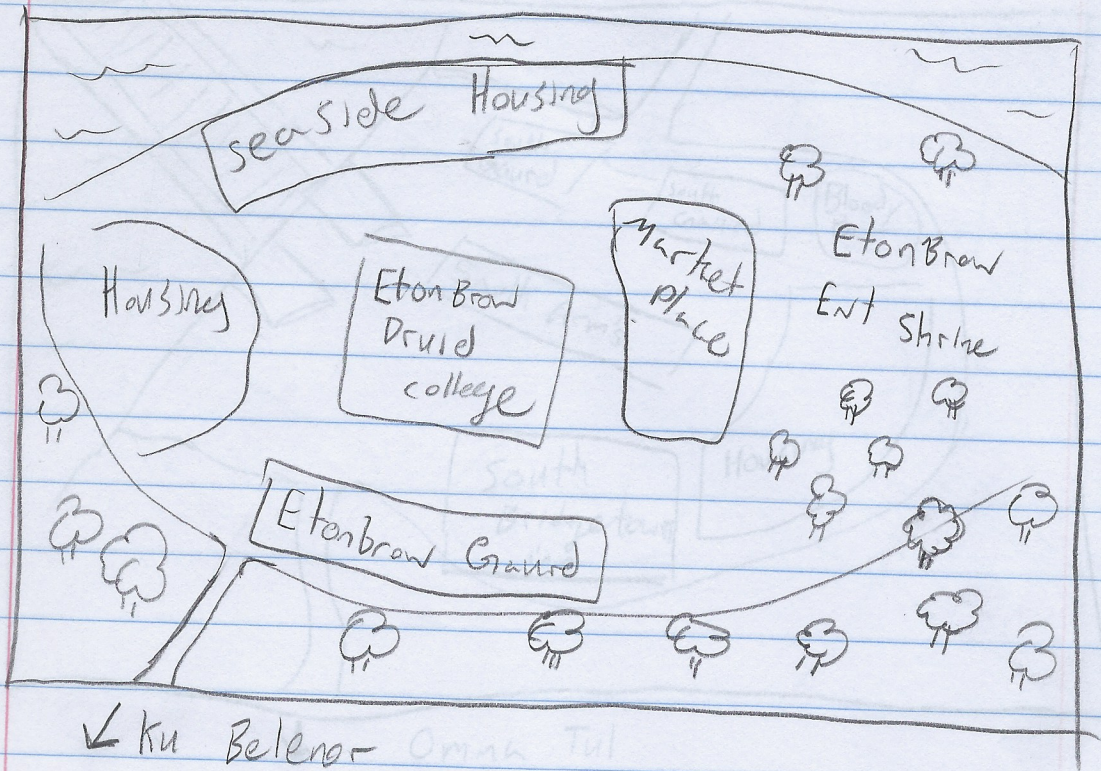 seaside Housing
Housing
EtonBrow
Druid
college
Market
Place
EtonBrow
Ent Shrine
Etonbrow Gaurd
↙ Ku Belenor
Omna Tul
South
Housing